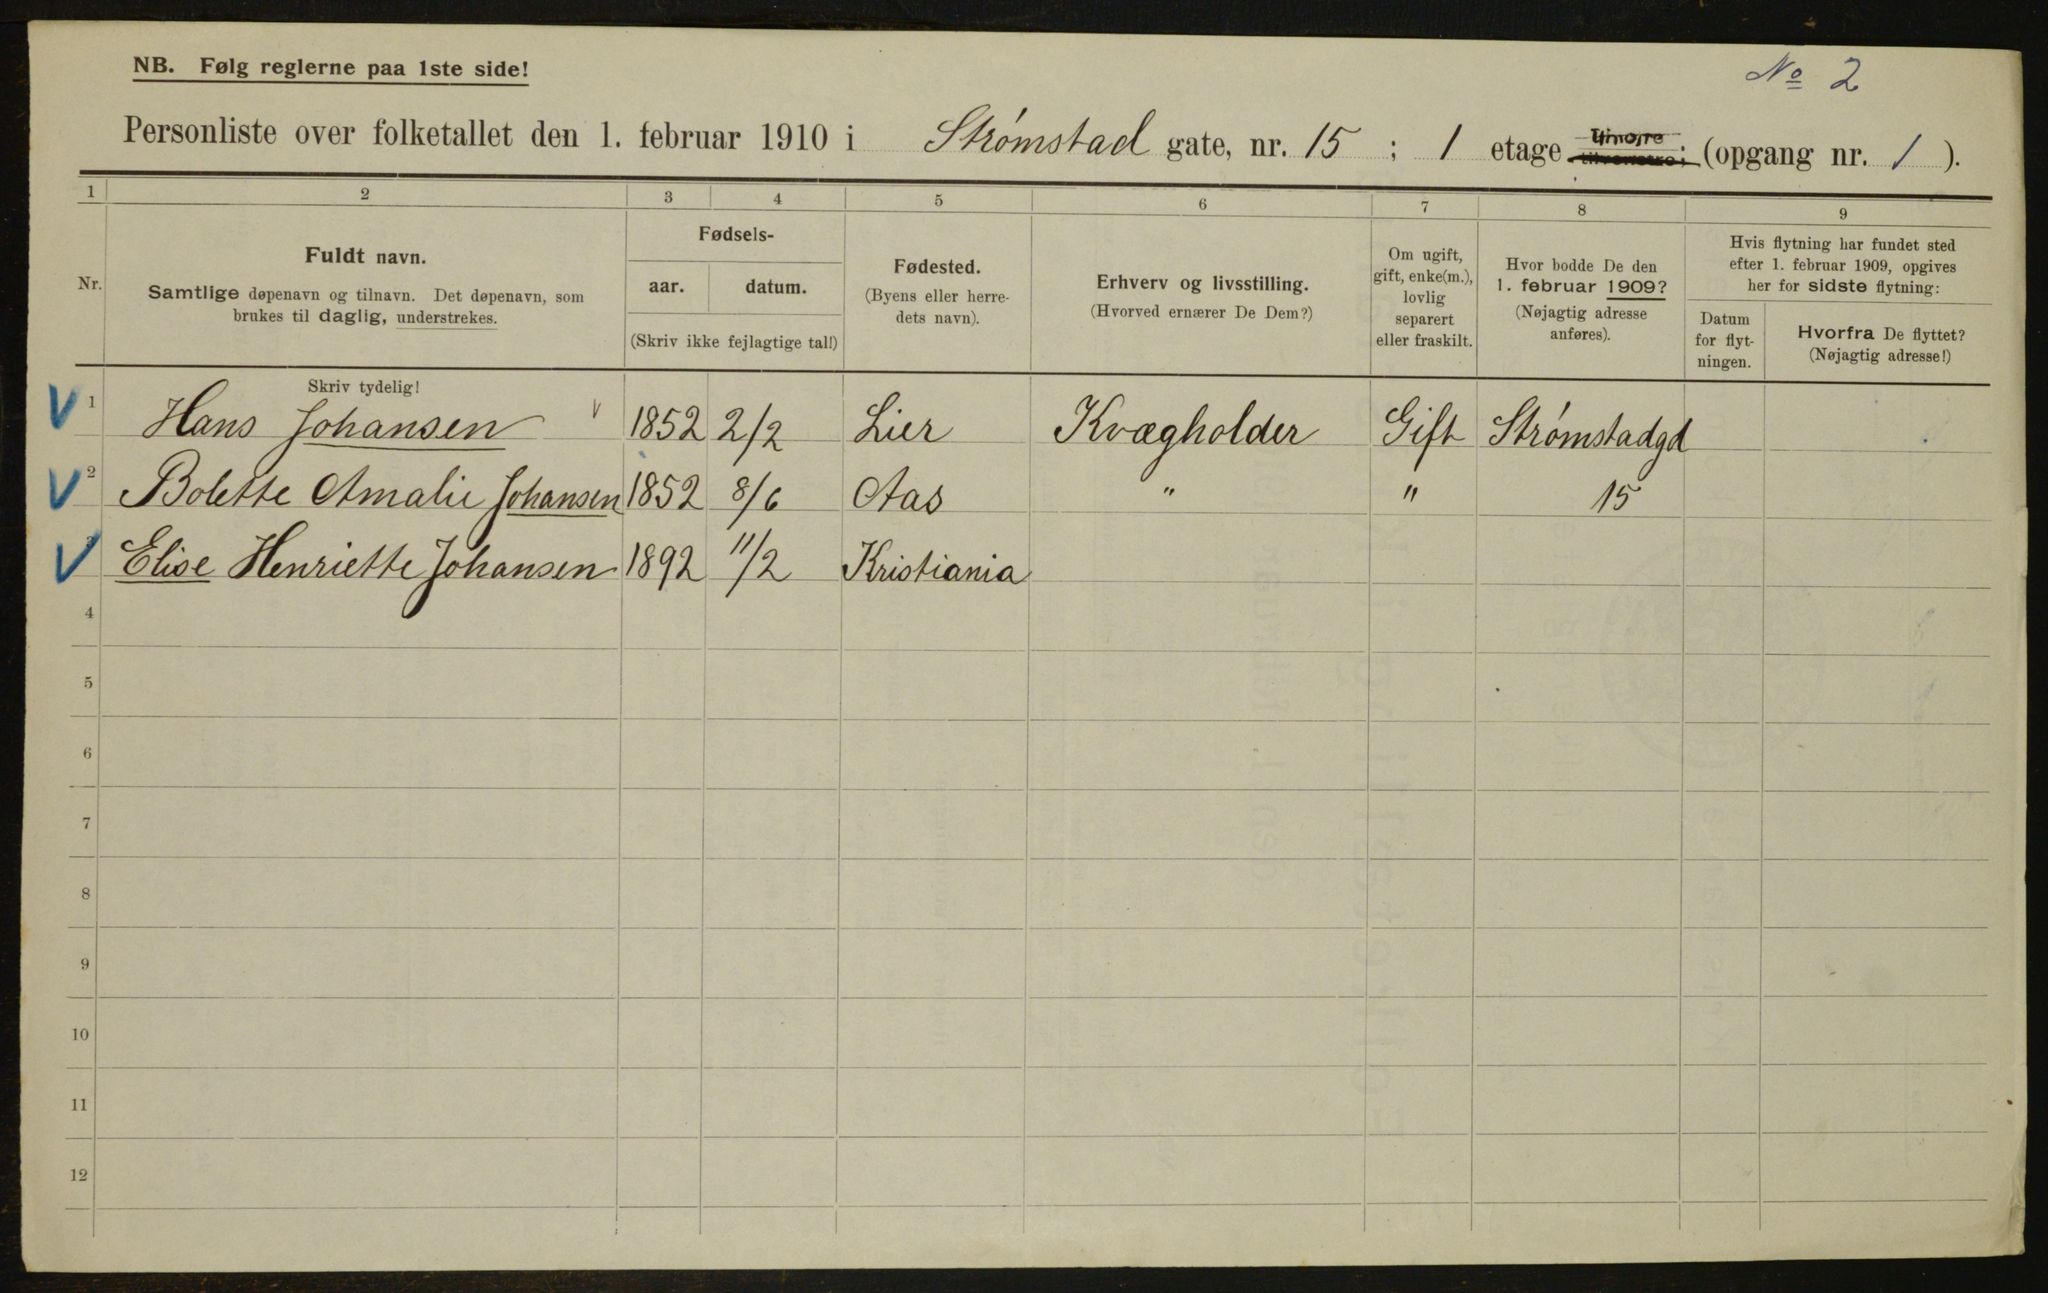 NB. Følg reglerne paa 1ste side!
No 2
Personliste over folketallet den 1. februar 1910 i Strømstad gate, nr. 15 ; 1 etage (opgang nr. 1 ).
1 2 3 4 5 6 7 8 9
Nr.
Fuldt navn.
Samtlige døpenavn og tilnavn. Det døpenavn, som
brukes til daglig, understrekes.
Fødsels-
aar. datum.
(Skriv ikke fejlagtige tal!)
Fødested.
(Byens eller herre-
dets navn).
Erhverv og livsstilling.
(Hvorved ernærer De Dem?)
Om ugift,
gift, enke(m.),
lovlig
separert
eller fraskilt.
Hvor bodde De den
1. februar 1909?
(Nøjagtig adresse
anføres).
Hvis flytning har fundet sted
efter 1. februar 1909, opgives
her for sidste flytning:
Datum
for flyt-
ningen.
Hvorfra De flyttet?
(Nøjagtig adresse!)
Skriv tydelig!
V 1 Hans Johansen v 1852 2/2 Lier Kvægholder Gift Strømstadgd
V 2 Bolette Amalie Johansen 1852 8/6 Aas " " 15
V 3 Elise Henriette Johansen 1892 11/2 Kristiania
4
5
6
7
8
9
10
11
12